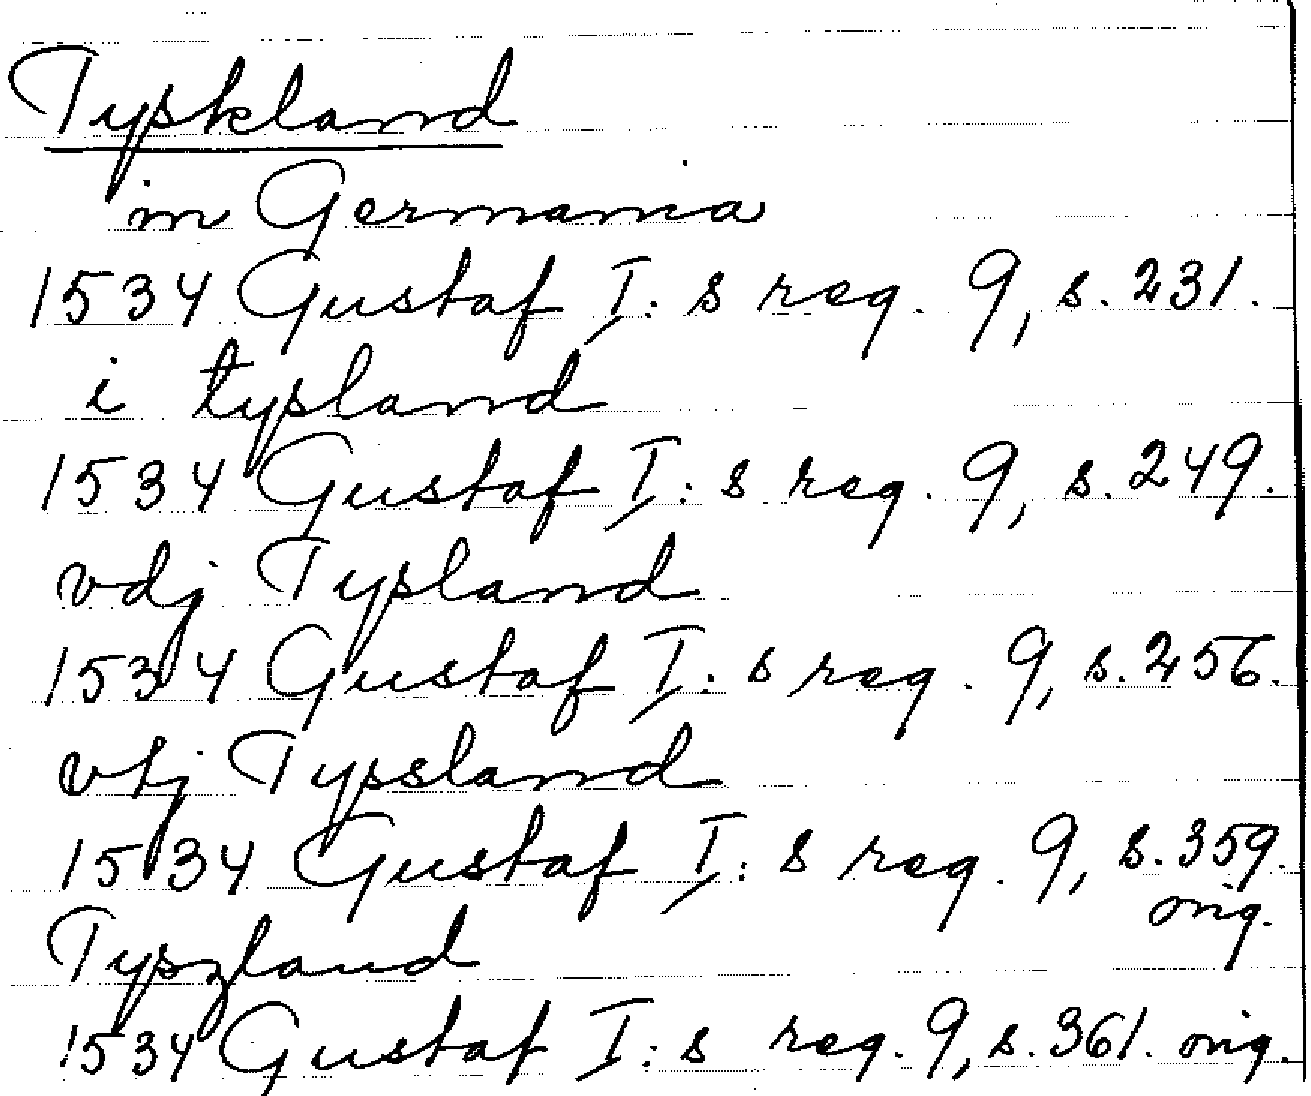 Tyskland
in Germania
1534 Gustaf I:s reg. 9, s. 231.
i tysland
1534 Gustaf I:s reg. 9, s. 249.
vdj Tysland
1534 Gustaf I:s reg. 9, s. 256.
vtj Tyssland
1534 Gustaf I:s reg. 9, s. 359.
orig.
Tyszland
1534 Gustaf I:s reg. 9, s. 361. orig.